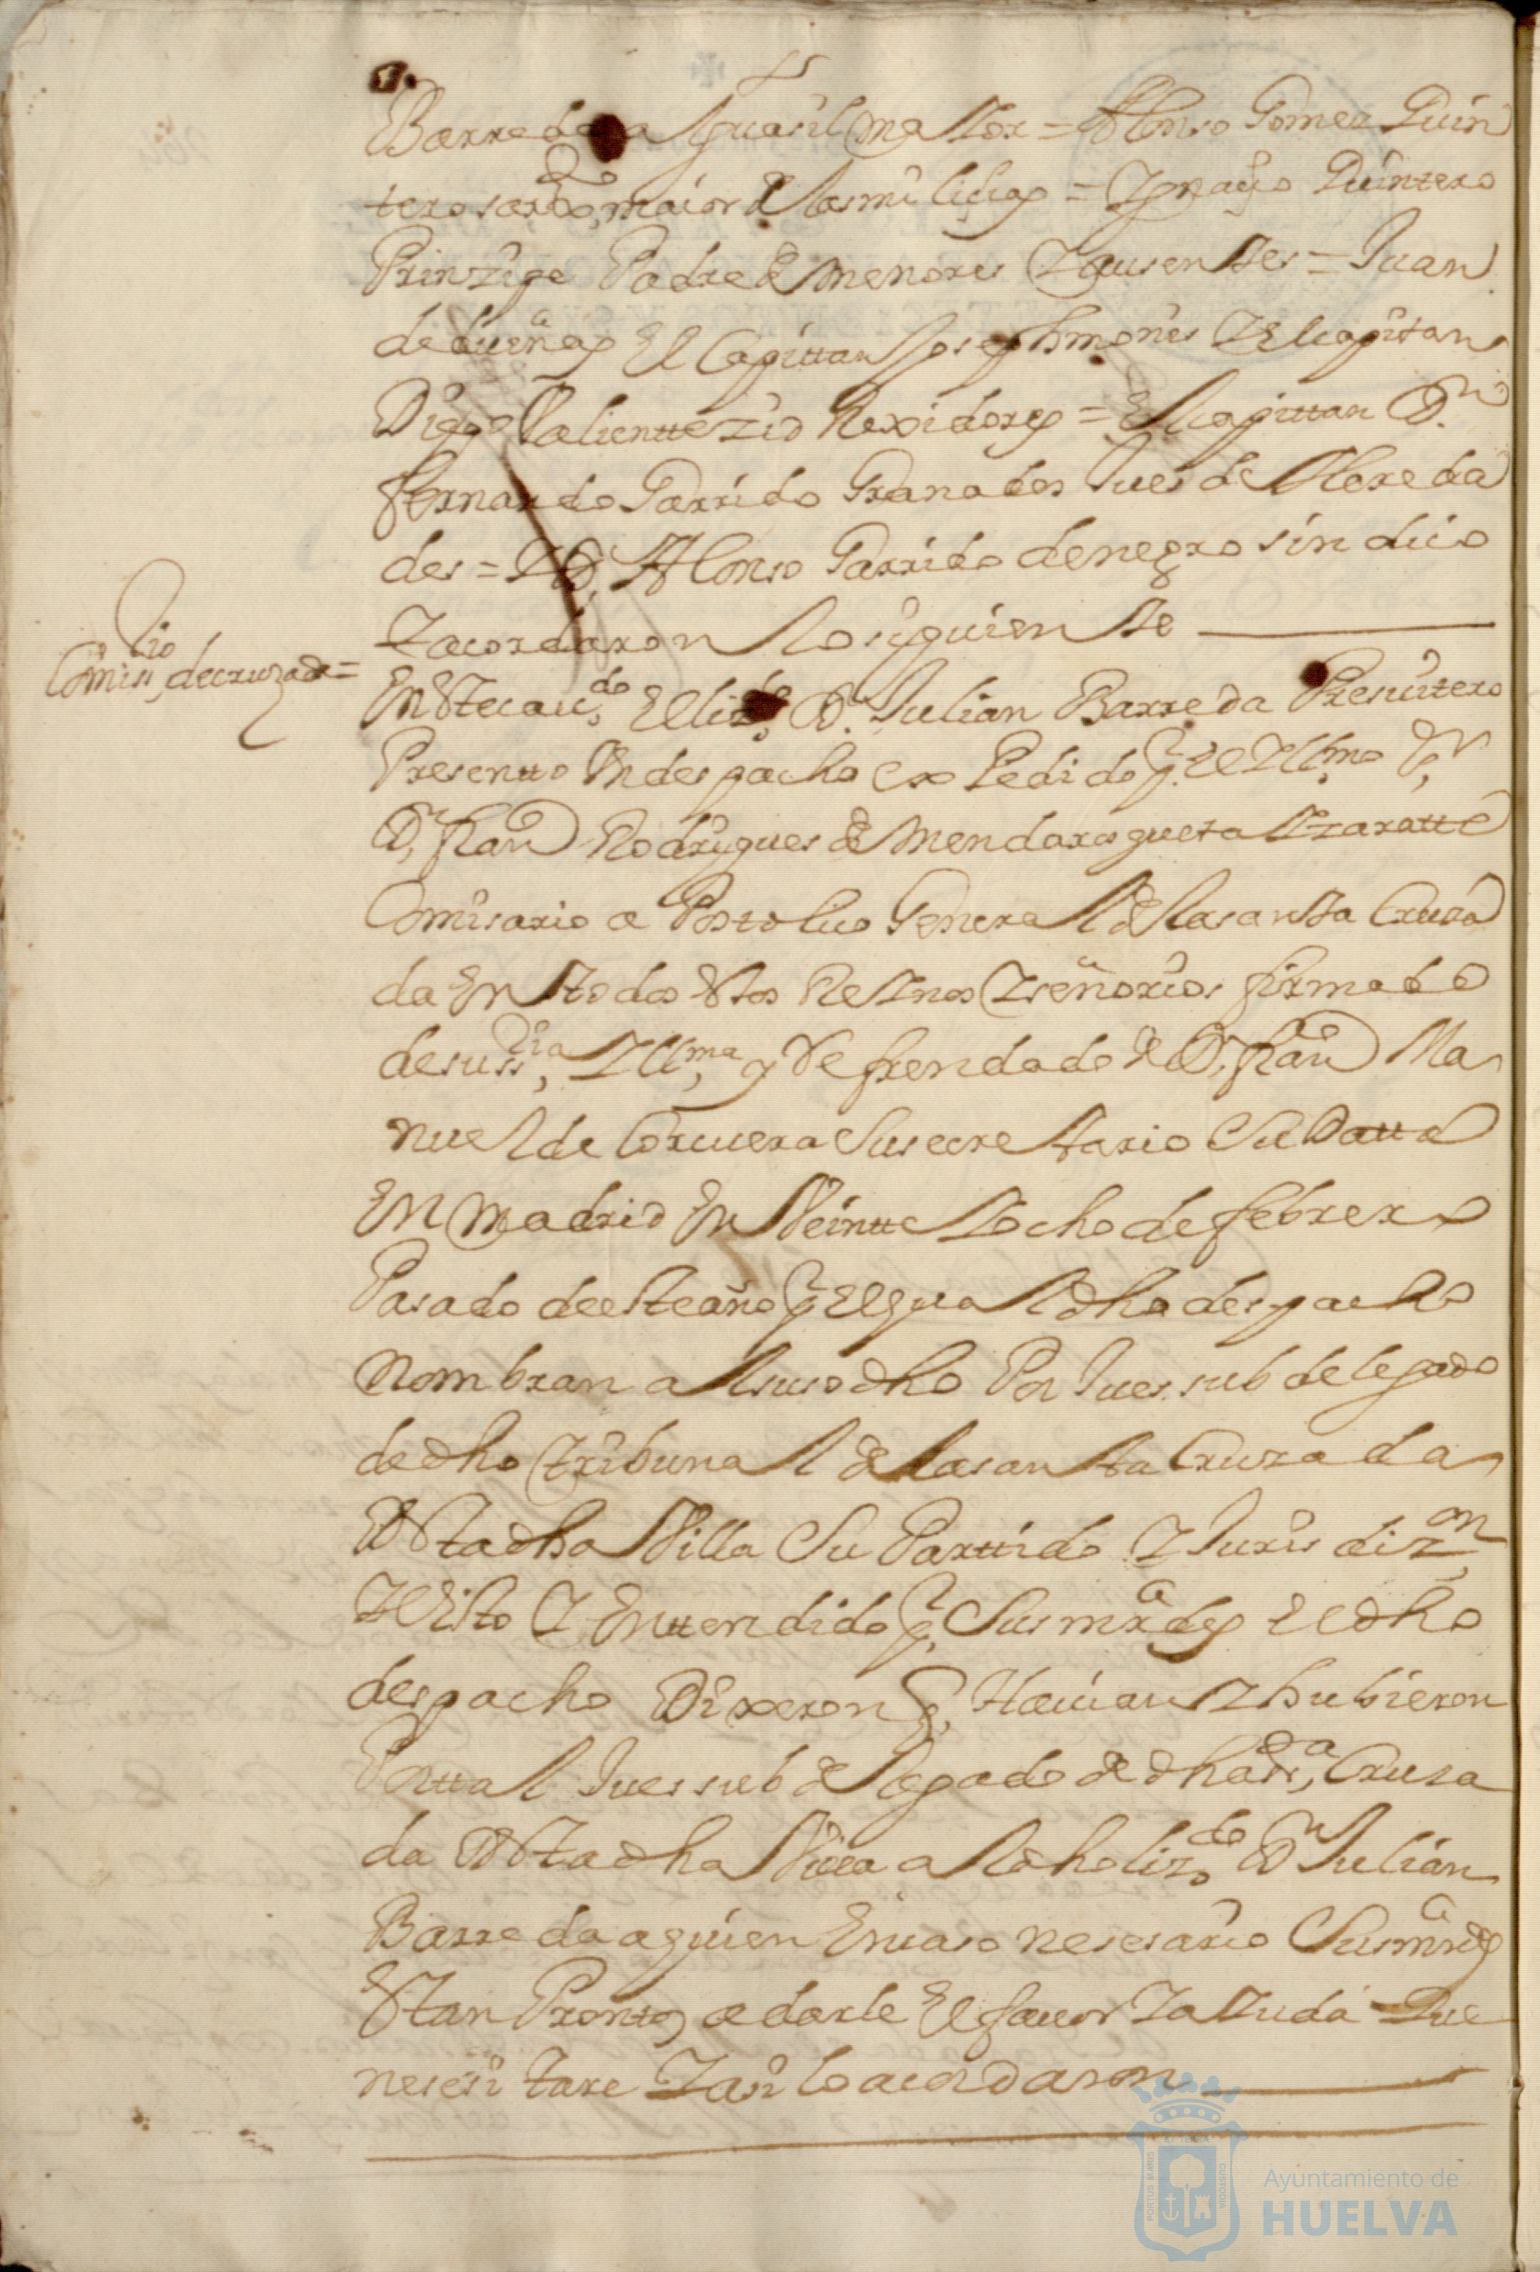 Barreda Alguasil maior = Alonso Gomez Quin
tero sarxto maior de las miliçias = Ygnaçio Quintero
Prinzipe Padre de menores Y ausentes = Juan
de bueñas El Capittan Joseph mones Y El capitan
Diego Valiente zid Rexidores = El capittan Dn
fernando Garrido Granados Jues de Hereda
des = Y D. Alonso Garrido de negro sindico
Y acordaron lo siguiente
Comisrio de cruzada =
En Este caudo El lizdo Dn Julian Barreda Presuitero
Presentto Vn despacho expedido p. El Yllmo Sr
D. Fran Rodrigues de Mendarosqueta Y zaratte
Comisario apostolico General de la santa Cruza
da En todos Estos Reynos Y señorios firmado
de su sria Yllma y Refrendado de D. franco Ma
nuel de Corcuera Su secretario Su Datta
En Madrid En Veintte Y ocho de febrero
Pasado de este año p. El qual dho despacho
nombran al susodho Por Jues subdelegado
de dho tribunal de la santa Cruzada
de Esta dha Villa Su Parttido Y Jurisdizon
Y Visto Y Enttendido p. Sus mrdes El dho
despacho Dixeron q. Hauian Y hubieron
Por ttal Jues subdelegado de dha sta Cruza
da de Esta dha Villa al dho lizdo Dn Julian
Barreda a quien En caso nesesario Sus mrds
Estan Prontos a darle El fauor Y aYuda Que
nesesitare Y asi lo acordaron
Ayuntamiento de
HUELVA
PORTUS MARIS
CUSTODIA